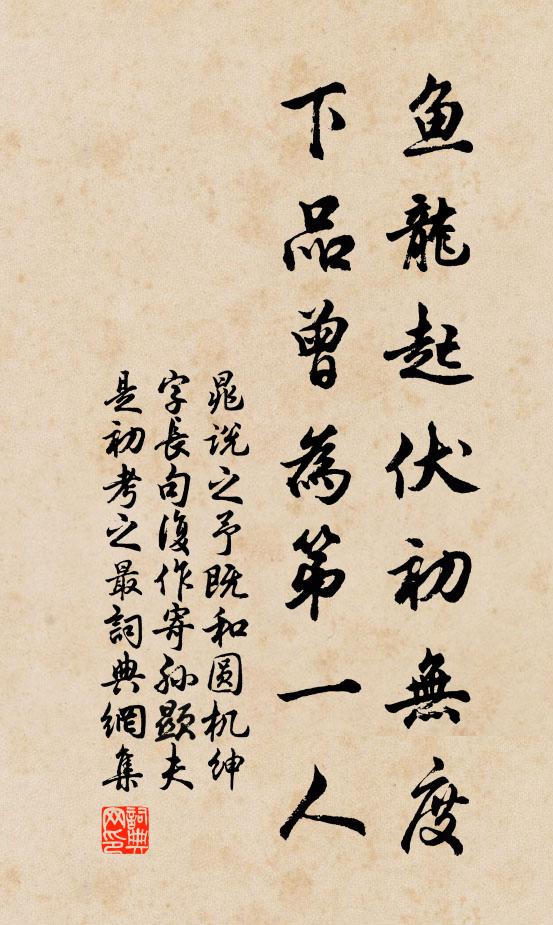 鱼龍起伏初無度
下品曾為第一人
晁說之予既和圆机紳
字長句復作寄孙顯夫
是初考之最詞典網集
詞典网印